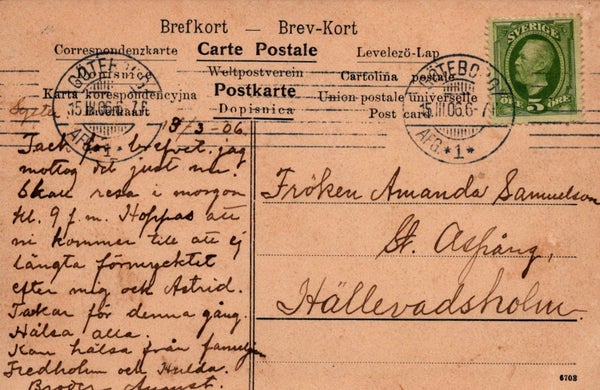 Brefkort — Brev-Kort
Correspondenzkarte Carte Postale Levelező-Lap
Dopisnice Weltpostverein Cartolina postale
Karta korespondencyjna Postkarte Union postale universelle
Briefkaart Dopisnica Post card
SVERIGE
ÖRE 5 ÖRE
GÖTEBORG
15 III 06. 6-7 E
AFG. *1*
GÖTEBORG
15 III 06. 6-7
AFG. *1*
15/3-06.
Tack för brefvet, jag
mottog det just nu.
Skall resa i morgon
kl. 9 f.m. Hoppas att
ni kommer till att ej
längta förmycket
efter mig och Astrid.
Tackar för denna gång.
Hälsa alla.
Kan hälsa från familjen
Fredholm och Hulda.
Broder August.
Fröken Amanda Samuelson
St. Aspång,
Hällevadsholm.
6708